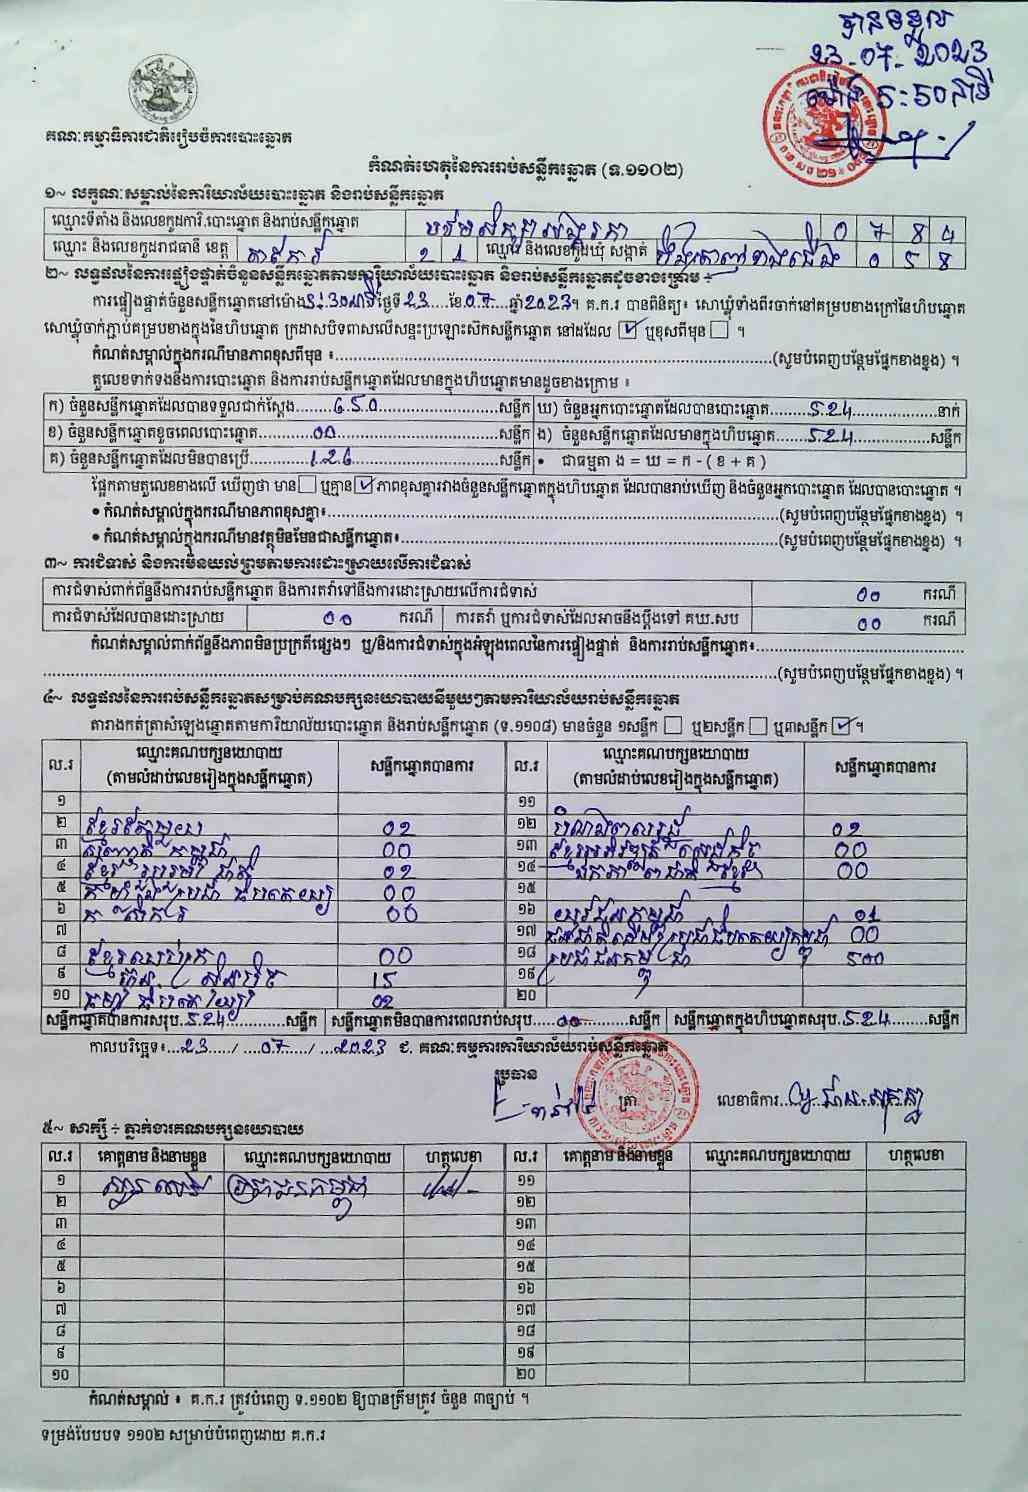 បានទទួល
23-07-2023
ម៉ោង 5:50 នាទី
គណៈកម្មាធិការជាតិរៀបចំការបោះឆ្នោត
កំណត់ហេតុនៃការរាប់សន្លឹកឆ្នោត (ទ.១១០២)
១~ លក្ខណៈសម្គាល់នៃការិយាល័យបោះឆ្នោត និងរាប់សន្លឹកឆ្នោត
ឈ្មោះទីតាំង និងលេខកូដការិ.បោះឆ្នោត និងរាប់សន្លឹកឆ្នោត 0 7 8 4
ឈ្មោះ និងលេខកូដរាជធានី ខេត្ត តាកែវ 2 1 ឈ្មោះ និងលេខកូដឃុំ សង្កាត់ 0 5 8
២~ លទ្ធផលនៃការផ្ទៀងផ្ទាត់ចំនួនសន្លឹកឆ្នោតតាមការិយាល័យបោះឆ្នោត និងរាប់សន្លឹកឆ្នោតដូចខាងក្រោម ÷
ការផ្ទៀងផ្ទាត់ចំនួនសន្លឹកឆ្នោតនៅម៉ោង 3:30 ថ្ងៃទី 23 ខែ 07 ឆ្នាំ 2023។ គ.ក.រ បានពិនិត្យ៖ សោឃ្នុំទាំងពីរចាក់នៅគម្របខាងក្រៅនៃហិបឆ្នោត
សោឃ្នុំចាក់ភ្ជាប់គម្របខាងក្នុងនៃហិបឆ្នោត ក្រដាសបិទពាសលើសន្ទះប្រឡោះស៊កសន្លឹកឆ្នោត នៅដដែល ☑ ឬខុសពីមុន ☐ ។
កំណត់សម្គាល់ក្នុងករណីមានភាពខុសពីមុន ៖ (សូមបំពេញបន្ថែមផ្នែកខាងខ្នង) ។
តួលេខទាក់ទងនឹងការបោះឆ្នោត និងការរាប់សន្លឹកឆ្នោតដែលមានក្នុងហិបឆ្នោតមានដូចខាងក្រោម ៖
ក) ចំនួនសន្លឹកឆ្នោតដែលបានទទួលជាក់ស្តែង 650 សន្លឹក ឃ) ចំនួនអ្នកបោះឆ្នោតដែលបានបោះឆ្នោត 524 នាក់
ខ) ចំនួនសន្លឹកឆ្នោតខូចពេលបោះឆ្នោត 00 សន្លឹក ង) ចំនួនសន្លឹកឆ្នោតដែលមានក្នុងហិបឆ្នោត 524 សន្លឹក
គ) ចំនួនសន្លឹកឆ្នោតដែលមិនបានប្រើ 126 សន្លឹក • ជាធម្មតា ង = ឃ = ក - ( ខ + គ )
ផ្អែកតាមតួលេខខាងលើ ឃើញថា មាន ☐ ឬគ្មាន ☑ ភាពខុសគ្នារវាងចំនួនសន្លឹកឆ្នោតក្នុងហិបឆ្នោត ដែលបានរាប់ឃើញ និងចំនួនអ្នកបោះឆ្នោត ដែលបានបោះឆ្នោត ។
• កំណត់សម្គាល់ក្នុងករណីមានភាពខុសគ្នា៖ (សូមបំពេញបន្ថែមផ្នែកខាងខ្នង) ។
• កំណត់សម្គាល់ក្នុងករណីមានវត្ថុមិនមែនជាសន្លឹកឆ្នោត៖ (សូមបំពេញបន្ថែមផ្នែកខាងខ្នង) ។
៣~ ការជំទាស់ និងការមិនយល់ព្រមតាមការដោះស្រាយលើការជំទាស់
ការជំទាស់ពាក់ព័ន្ធនឹងការរាប់សន្លឹកឆ្នោត និងការតវ៉ាទៅនឹងការដោះស្រាយលើការជំទាស់ 00 ករណី
ការជំទាស់ដែលបានដោះស្រាយ 00 ករណី ការតវ៉ា ឬការជំទាស់ដែលអាចនឹងប្តឹងទៅ គឃ.សប 00 ករណី
កំណត់សម្គាល់ពាក់ព័ន្ធនឹងភាពមិនប្រក្រតីផ្សេងៗ ឬ/និងការជំទាស់ក្នុងអំឡុងពេលនៃការផ្ទៀងផ្ទាត់ និងការរាប់សន្លឹកឆ្នោត៖
(សូមបំពេញបន្ថែមផ្នែកខាងខ្នង) ។
៤~ លទ្ធផលនៃការរាប់សន្លឹកឆ្នោតសម្រាប់គណបក្សនយោបាយនីមួយៗតាមការិយាល័យរាប់សន្លឹកឆ្នោត
តារាងកត់ត្រាសំឡេងឆ្នោតតាមការិយាល័យបោះឆ្នោត និងរាប់សន្លឹកឆ្នោត (ទ.១១០៨) មានចំនួន ១សន្លឹក ☐ ឬ២សន្លឹក ☐ ឬ៣សន្លឹក ☑ ។
ល.រ ឈ្មោះគណបក្សនយោបាយ (តាមលំដាប់លេខរៀងក្នុងសន្លឹកឆ្នោត) សន្លឹកឆ្នោតបានការ ល.រ ឈ្មោះគណបក្សនយោបាយ (តាមលំដាប់លេខរៀងក្នុងសន្លឹកឆ្នោត) សន្លឹកឆ្នោតបានការ
១ ១១
២ ខ្មែររួបរួម 02 ១២ 02
៣ 00 ១៣ 00
៤ 02 ១៤ 00
៥ 00 ១៥
៦ កសិករ 00 ១៦ យុវជនកម្ពុជា 01
៧ ១៧ 00
៨ 00 ១៨ ប្រជាជនកម្ពុជា 500
៩ 15 ១៩
១០ 02 ២០
សន្លឹកឆ្នោតបានការសរុប 524 សន្លឹក សន្លឹកឆ្នោតមិនបានការពេលរាប់សរុប 00 សន្លឹក សន្លឹកឆ្នោតក្នុងហិបឆ្នោតសរុប 524 សន្លឹក
កាលបរិច្ឆេទ៖ 23 / 07 / 2023 ជ. គណៈកម្មការការិយាល័យរាប់សន្លឹកឆ្នោត
ប្រធាន ត្រា លេខាធិការ
៥~ សាក្សី ÷ ភ្នាក់ងារគណបក្សនយោបាយ
ល.រ គោត្តនាម និងនាមខ្លួន ឈ្មោះគណបក្សនយោបាយ ហត្ថលេខា ល.រ គោត្តនាម និងនាមខ្លួន ឈ្មោះគណបក្សនយោបាយ ហត្ថលេខា
១ ប្រជាជនកម្ពុជា ១១
២ ១២
៣ ១៣
៤ ១៤
៥ ១៥
៦ ១៦
៧ ១៧
៨ ១៨
៩ ១៩
១០ ២០
កំណត់សម្គាល់ ៖ គ.ក.រ ត្រូវបំពេញ ទ.១១០២ ឱ្យបានត្រឹមត្រូវ ចំនួន ៣ច្បាប់ ។
ទម្រង់បែបបទ ១១០២ សម្រាប់បំពេញដោយ គ.ក.រ